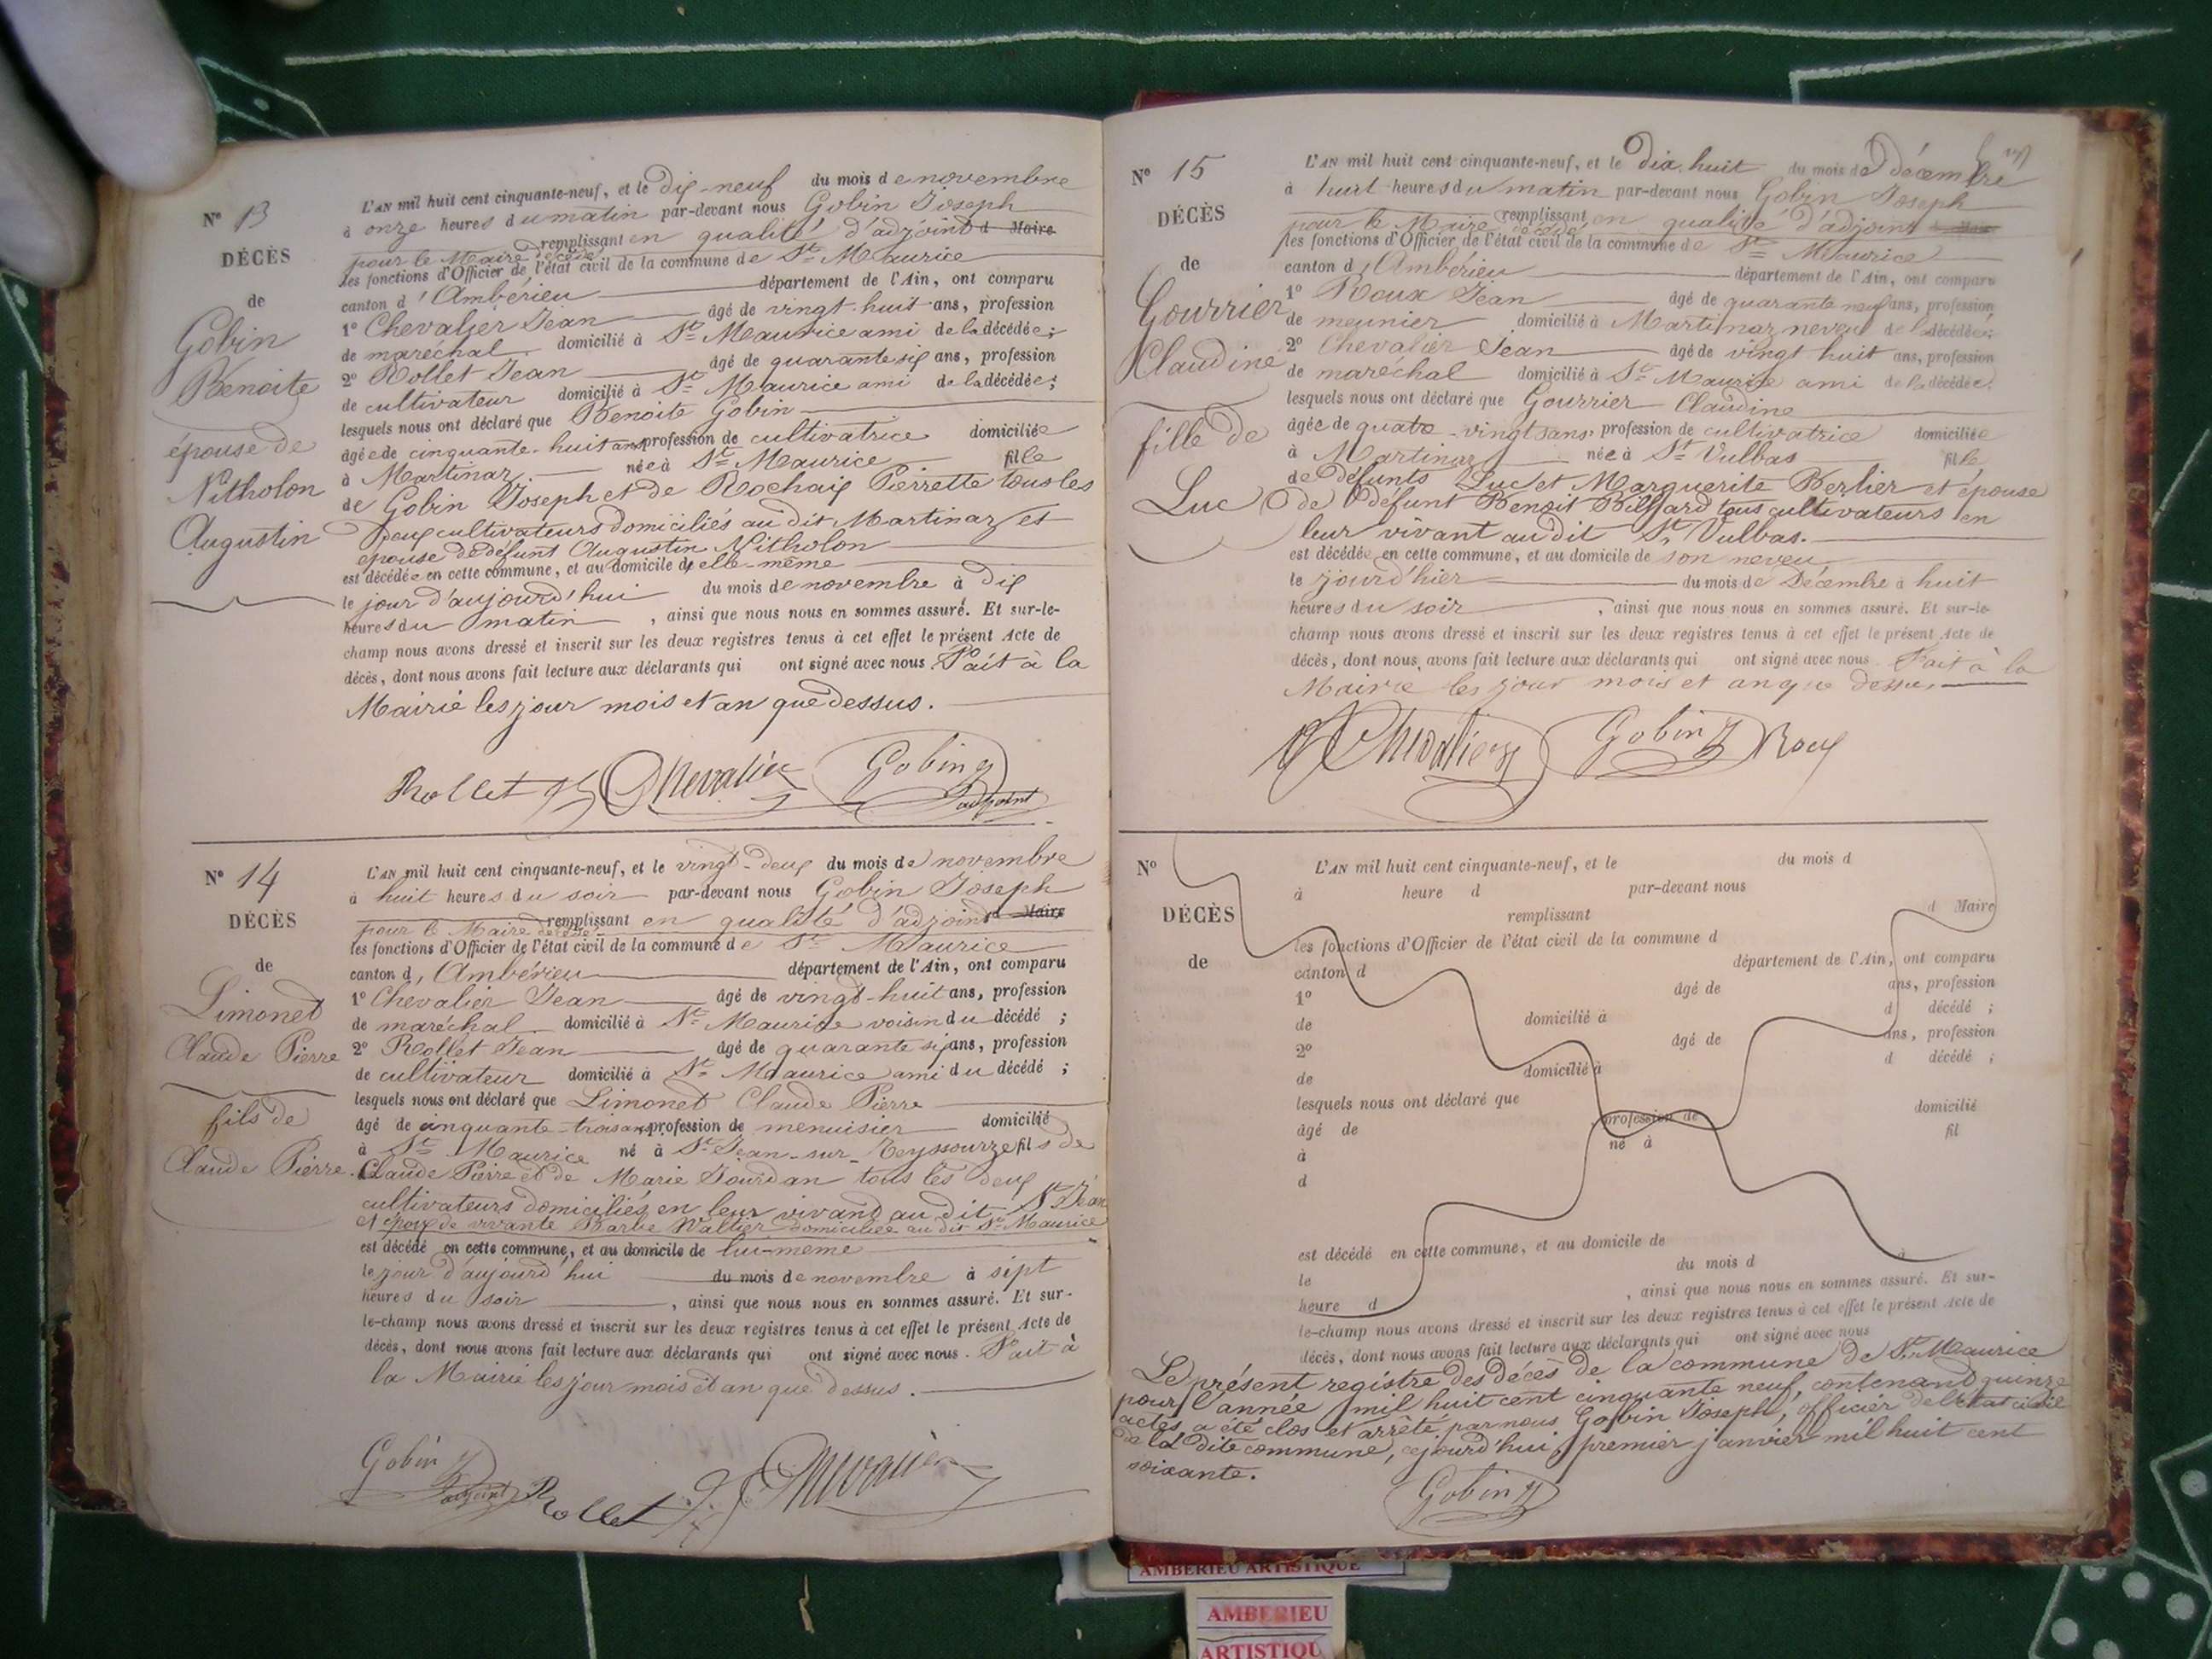 N° 13
DÉCÈS
de
Gobin
Benoite
épouse de
Nitholon
Augustin
L'AN mil huit cent cinquante-neuf, et le dix-neuf du mois de novembre
à onze heures du matin par-devant nous Gobin Joseph
remplissant en qualité d'adjoint d Maire
pour le Maire décédé
les fonctions d'Officier de l'état civil de la commune de St Maurice
canton d'Ambérieu département de l'Ain, ont comparu
1° Chevalier Jean âgé de vingt-huit ans, profession
de maréchal domicilié à St Maurice ami de la décédée;
2° Rollet Jean âgé de quarante six ans, profession
de cultivateur domicilié à St Maurice ami de la décédée;
lesquels nous ont déclaré que Benoite Gobin
âgée de cinquante-huit ans profession de cultivatrice domiciliée
à Martinaz née à St Maurice fille
de Gobin Joseph et de Rochaix Pierrette tous les
deux cultivateurs domiciliés au dit Martinaz et
épouse de défunt Augustin Nitholon
est décédée en cette commune, et au domicile d'elle-même
le jour d'aujourd'hui du mois de novembre à dix
heures du matin , ainsi que nous nous en sommes assuré. Et sur-le-
champ nous avons dressé et inscrit sur les deux registres tenus à cet effet le présent Acte de
décès, dont nous avons fait lecture aux déclarants qui ont signé avec nous. Fait à la
Mairie les jour mois et an que dessus.
Rollet J Chevalier Gobin J
adjoint
N° 14
DÉCÈS
de
Limonet
Claude Pierre
fils de
Claude Pierre
L'AN mil huit cent cinquante-neuf, et le vingt-deux du mois de novembre
à huit heures du soir par-devant nous Gobin Joseph
remplissant en qualité d'adjoint d Maire
pour le Maire décédé
les fonctions d'Officier de l'état civil de la commune de St Maurice
canton d'Ambérieu département de l'Ain, ont comparu
1° Chevalier Jean âgé de vingt-huit ans, profession
de maréchal domicilié à St Maurice voisin du décédé ;
2° Rollet Jean âgé de quarante six ans, profession
de cultivateur domicilié à St Maurice ami du décédé ;
lesquels nous ont déclaré que Limonet Claude Pierre
âgé de cinquante-trois ans profession de menuisier domicilié
à St Maurice né à St Jean-sur-Reyssourze fils de
Claude Pierre et de Marie Jourdan tous les deux
cultivateurs domiciliés en leur vivant au dit St Jean
et époux de vivante Barbe Waltier domiciliée au dit St Maurice
est décédé en cette commune, et au domicile de lui-même
le jour d'aujourd'hui du mois de novembre à sept
heures du soir , ainsi que nous nous en sommes assuré. Et sur-
le-champ nous avons dressé et inscrit sur les deux registres tenus à cet effet le présent Acte de
décès, dont nous avons fait lecture aux déclarants qui ont signé avec nous. Fait à
la Mairie les jour mois et an que dessus.
Gobin J
adjoint Rollet J Chevalier
N° 15
DÉCÈS
de
Gourrier
Claudine
fille de
Luc
L'AN mil huit cent cinquante-neuf, et le dix huit du mois de décembre
à huit heures du matin par-devant nous Gobin Joseph
remplissant en qualité d'adjoint
pour le Maire décédé
les fonctions d'Officier de l'état civil de la commune de St Maurice
canton d'Ambérieu département de l'Ain, ont comparu
1° Roux Jean âgé de quarante neuf ans, profession
de meunier domicilié à Martinaz neveu de la décédée;
2° Chevalier Jean âgé de vingt huit ans, profession
de maréchal domicilié à St Maurice ami de la décédée.
lesquels nous ont déclaré que Gourrier Claudine
âgée de quatre-vingts ans, profession de cultivatrice domiciliée
à Martinaz née à St Vulbas fille
de défunts Luc et Marguerite Berlier et épouse
de défunt Benoit Billiard tous cultivateurs en
leur vivant au dit St Vulbas.
est décédée en cette commune, et au domicile de son neveu
le jourd'hier du mois de Décembre à huit
heures du soir , ainsi que nous nous en sommes assuré. Et sur-le-
champ nous avons dressé et inscrit sur les deux registres tenus à cet effet le présent Acte de
décès, dont nous avons fait lecture aux déclarants qui ont signé avec nous. Fait à la
Mairie les jour mois et an que dessus.
J Chevalier Gobin J Roux
N°
DÉCÈS
de
L'AN mil huit cent cinquante-neuf, et le du mois d
à heure d par-devant nous
remplissant d Maire
les fonctions d'Officier de l'état civil de la commune d
canton d département de l'Ain, ont comparu
1° âgé de ans, profession
de domicilié à d décédé ;
2° âgé de ans, profession
de domicilié à d décédé ;
lesquels nous ont déclaré que
âgé de profession de domicilié
à né à fil
d
est décédé en cette commune, et au domicile de
le du mois d à
heure d , ainsi que nous nous en sommes assuré. Et sur-
le-champ nous avons dressé et inscrit sur les deux registres tenus à cet effet le présent Acte de
décès, dont nous avons fait lecture aux déclarants qui ont signé avec nous
Le présent registre des décès de la commune de St Maurice
pour l'année mil huit cent cinquante neuf, contenant quinze
actes a été clos et arrêté par nous Gobin Joseph, officier de l'état civil
de la dite commune, cejourd'hui premier janvier mil huit cent
soixante.
Gobin J
AMBERIEU ARTISTIQUE
AMBERIEU
ARTISTIQU